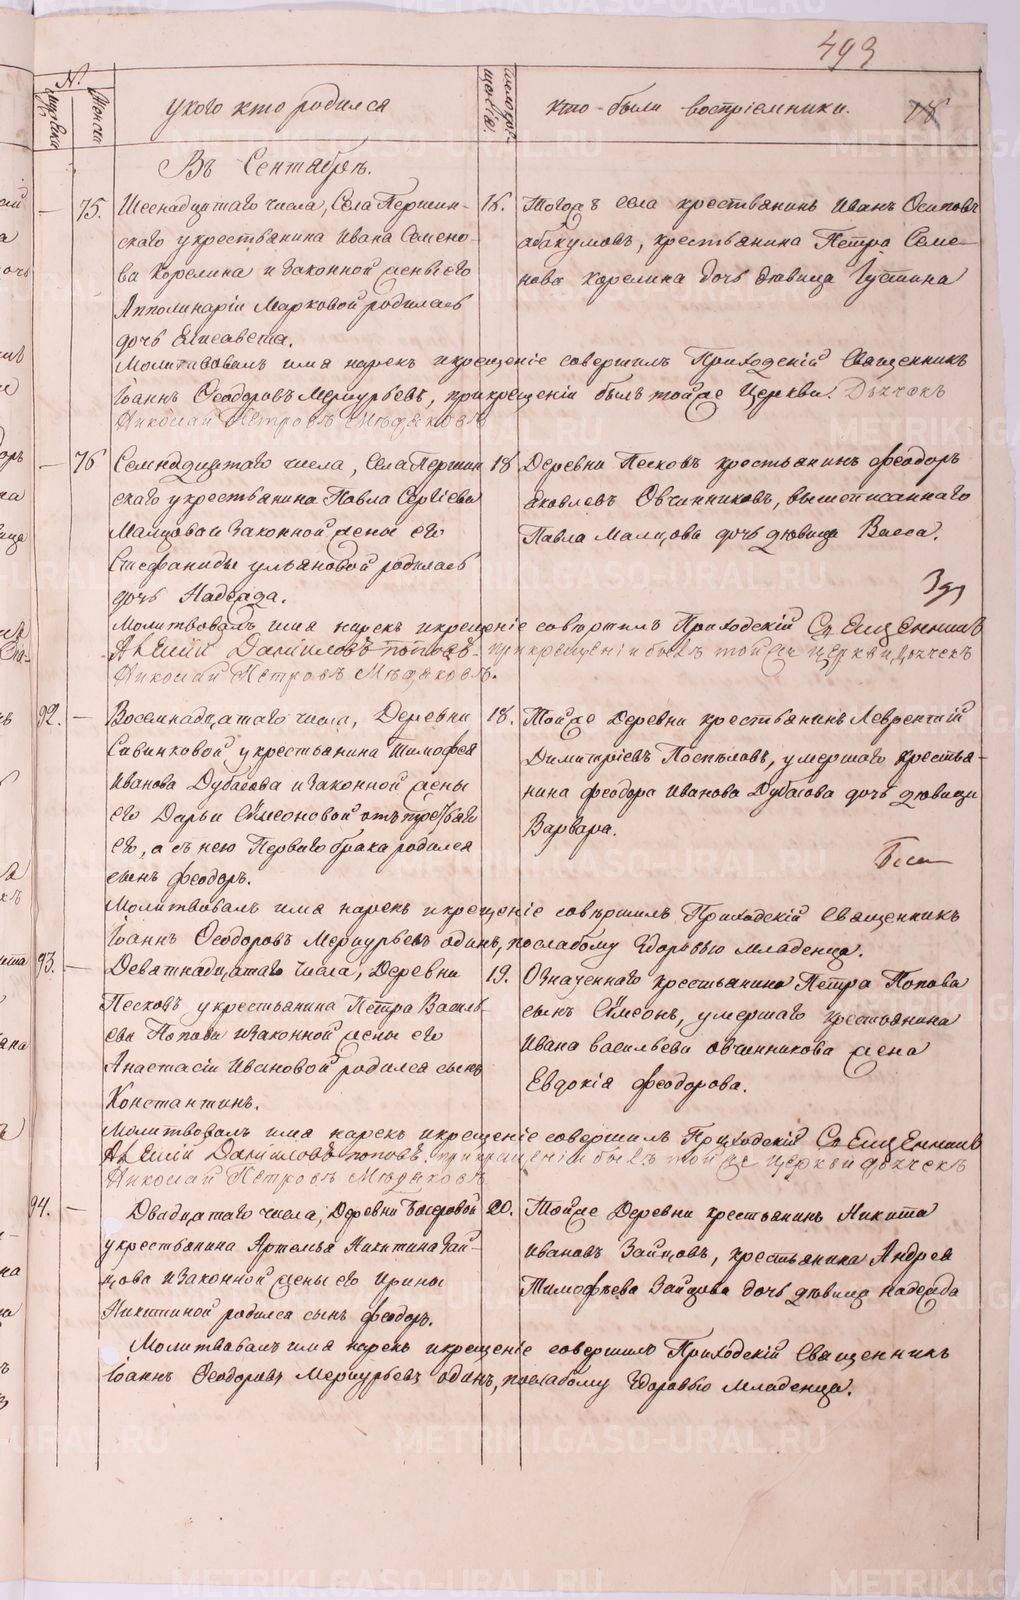 493
№
Мужска
Женска
у кого кто родился
кто были воспріемники.
18
Въ Сентябрѣ.
75.
Шеснадцатаго числа, Села Першин-
скаго у крестьянина Ивана Семено-
ва Корелина и законной жены его
Апполинаріи Марковой родилась
дочь Елисавета.
16.
Тогожъ села крестьянинъ Иванъ Осиповъ
Абакумовъ, крестьянина Петра Семе-
нова Карелина дочь дѣвица Іустина
Молитвовалъ имя нарекъ и крещеніе совершилъ Приходскій Священникъ
Іоаннъ Ѳеодоровъ Меркурьевъ, при крещеніи былъ тойже Церкви. Дьячекъ
Николай Петровъ Мѣдяковъ
76
Семнадцатаго числа, Села Першин
скаго у крестьянина Павла Сергіева
Малцова и законной жены его
Стефаниды Ульяновой родилась
дочь Надежда.
18
Деревни Песковъ крестьянинъ Феодоръ
Яковлевъ Овчинниковъ, вышеписаннаго
Павла Малцова дочь дѣвица Васса.
Молитвовалъ имя нарекъ и крещеніе совершилъ Приходскій Священникъ
Алексій Даниловъ Поповъ при крещеніи былъ тойже церкви дьячекъ
Николай Петровъ Мѣдяковъ.
92.
Восемнадцатаго числа, Деревни
Савинковой у крестьянина Тимофея
Иванова Дубасова и законной жены
его Дарьи Сѵмеоновой отъ
его, а съ нею Перваго брака родился
сынъ Феодоръ.
18.
Тойже Деревни крестьянинъ Лаврентій
Димитріевъ Поспѣловъ, умершаго крестья-
нина Феодора Иванова Дубасова дочь дѣвица
Варвара.
Молитвовалъ имя нарекъ и крещеніе совершилъ Приходскій Священникъ
Іоаннъ Ѳеодоровъ Меркурьевъ одинъ, по слабому здоровью младенца.
93.
Девятнадцатаго числа, Деревни
Песковъ у крестьянина Петра Василь-
ева Попова и законной жены его
Анастасіи Ивановой родился сынъ
Константинъ.
19.
Означеннаго крестьянина Петра Попова
сынъ Сѵмеонъ, умершаго крестьянина
Ивана Васильева Овчинникова жена
Евдокія Феодорова.
Молитвовалъ имя нарекъ и крещеніе совершилъ Приходскій Священникъ
Алексій Даниловъ Поповъ при крещеніи былъ тойже Церкви дьячекъ
Николай Петровъ Мѣдяковъ
94.
Двадцатаго числа, Деревни
у крестьянина Артемья Никитина Зай-
цова и законной жены его Ирины
Никитиной родился сынъ Феодоръ.
20.
Тойже Деревни крестьянинъ Никита
Ивановъ Зайцовъ, крестьянина Андрея
Тимофѣева Зайцова дочь дѣвица Надежда
Молитвовалъ имя нарекъ и крещеніе совершилъ Приходскій Священникъ
Іоаннъ Ѳеодоровъ Меркурьевъ одинъ, по слабому здоровью младенца.
METRIKI.GASO-URAL.RU